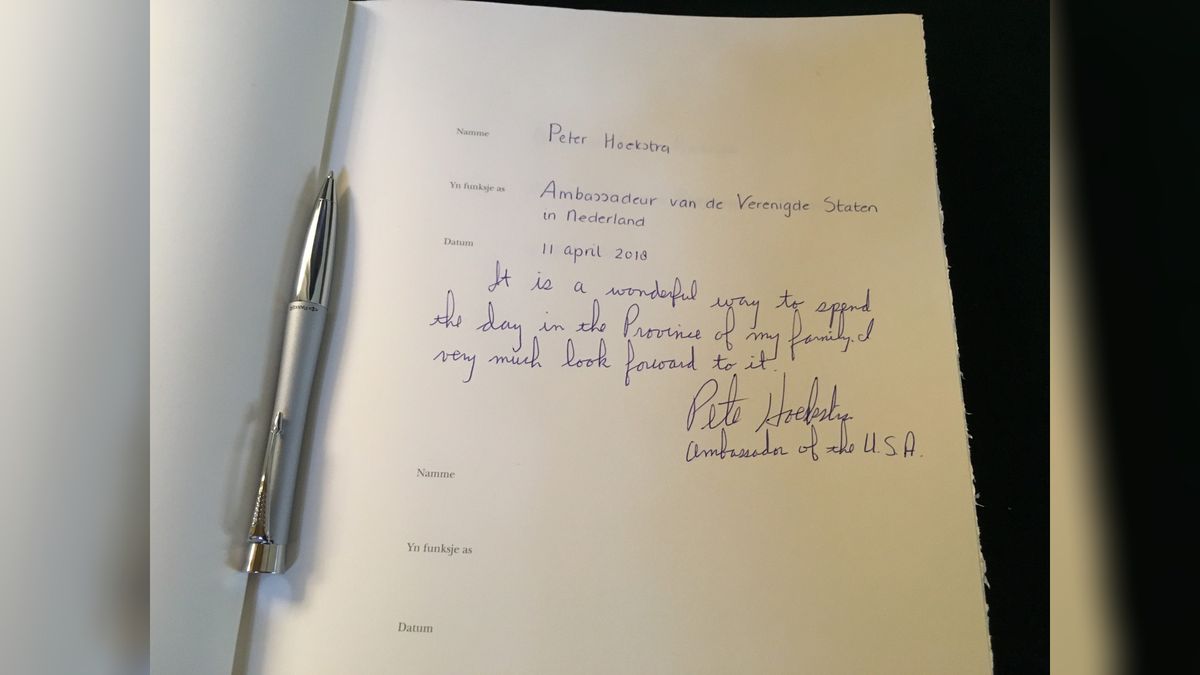 Namme Peter Hoekstra
Yn funksje as Ambassadeur van de Verenigde Staten
in Nederland
Datum 11 april 2018
It is a wonderful way to spend
the day in the Province of my family. I
very much look forward to it.
Pete Hoekstra
Ambassador of the U.S.A.
Namme
Yn funksje as
Datum
PARKER